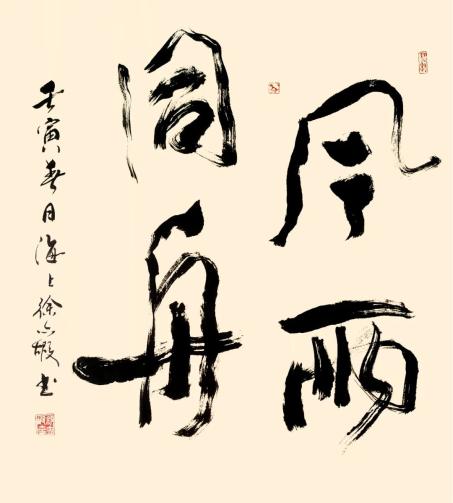 风雨
同舟
壬寅春日海上徐志敏书